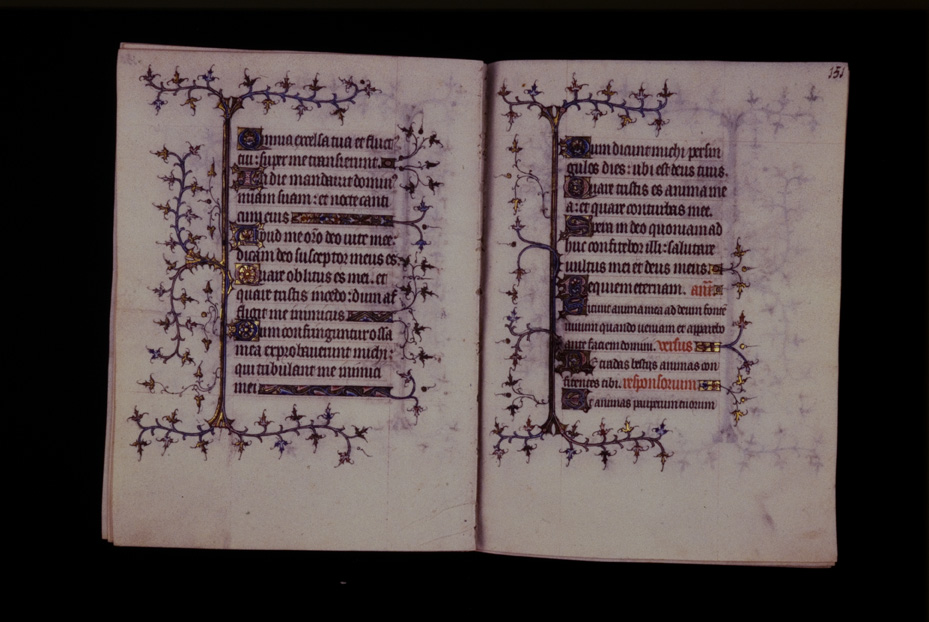 Omnia excelsa tua et fluct
tui: super me transierunt.
In die mandavit domin
nuam suam: et nocte canti
cum eius
Apud me oro deo vite mee:
dicam deo susceptor meus es.
Quare oblitus es mei. et
quare tristis incedo: dum af
fligit me inimicus
Dum confringuntur ossa
mea exprobraverunt michi:
qui tribulant me inimici
mei
151
Dum dicunt michi per sin
gulos dies: ubi est deus tuus.
Quare tristis es anima me
a: et quare conturbas me.
Spera in deo quoniam ad
huc confitebor illi: salutare
vultus mei et deus meus.
Requiem eternam. ant
Sitivit anima mea ad deum fonte
vivum quando veniam et apparebo
ante faciem domini. versus
Ne tradas bestiis animas con
fitentes tibi. responsorium
Et animas pauperum tuorum